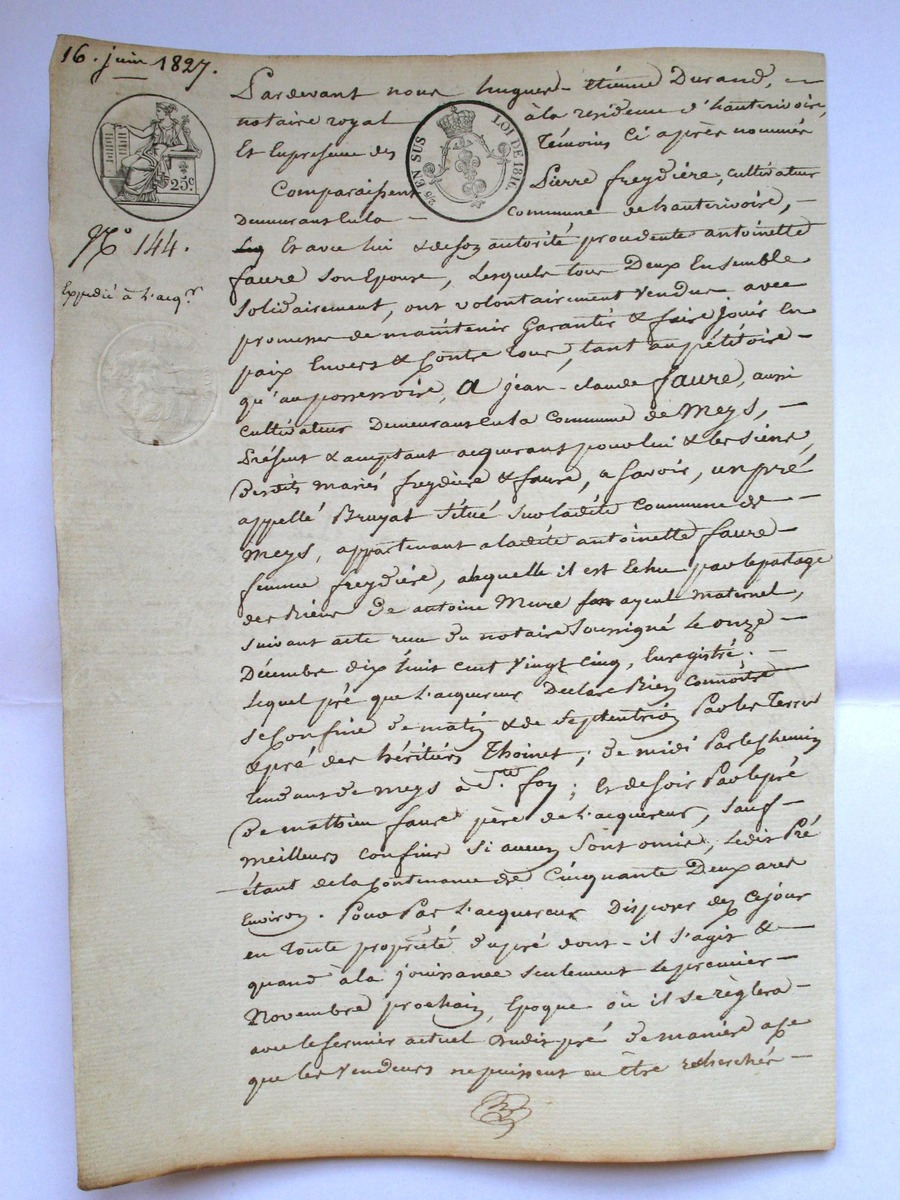 16. juin 1827.
25 c
25c EN SUS LOI DE 1816.
N.° 144.
Expédié à L'acq.r
Pardevant nous hugues-étienne Durand,
notaire royal à la residence d'hauterivoire,
Et En presence des Témoins Ci après nommés
Comparaissent Pierre freydière, cultivateur
Demeurant En la commune de hauterivoire, —
Et avec lui & de son autorité procedente antoinette
faure son Epouse, Lesquels tous Deux Ensemble
Solidairement, ont volontairement Vendus avec
promesse de maintenir Garantir & faire jouir En
paix Envers & Contre tous, tant au pétitoire —
qu'au possessoire, A jean-claude faure, aussi
cultivateur Demeurant En la Commune de Meys, —
Présent & acceptant acquerant pour lui & les siens,
desdits mariés freydière & faure, a Savoir, un pré
appellé Bruyat Situé Sur ladite Commune de —
Meys, appartenant a ladite antoinette faure —
femme freydière, alaquelle il est Echu par le partage
des Biens De antoine Mure son ayeul maternel,
suivant acte recu du notaire Soussigné Le onze —
Décembre dix huit cent Vingt Cinq, Enregistré. —
Lequel pré que L'acquereur Déclare Bien Connoître
se Confine De matin & de Septentrion Par les Terres
& pré des héritiers Thoinet; De midi Par le Chemin
tendant de Meys à S.te foy; Et de Soir Par le pré
De mathieu faure père de L'acquereur, Sauf —
meilleurs confins Si aucuns Sont omis, Ledit Pré
étant de la Contenance de Cinquante Deux ares
Environ. Pour Par L'acquereur Disposer dez Ce jour
en Toute propriété Du pré dont-il S'agit &
quand à la jouissance Seulement Le premier —
Novembre prochain, Epoque où il se règlera —
avec le fermier actuel Dudit pré De manière
que les Vendeurs ne puissent en être recherchés —